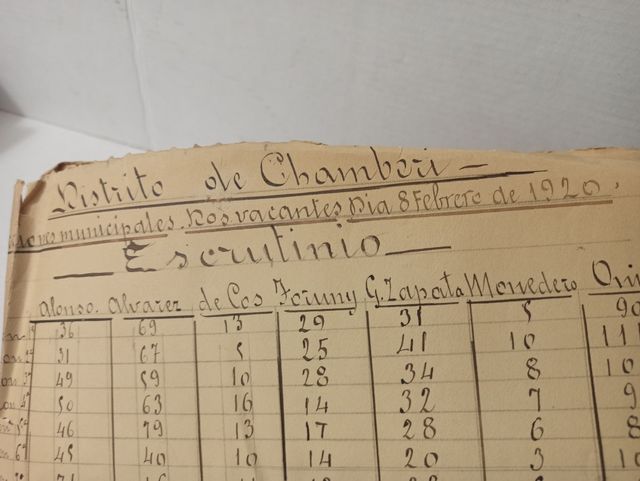 Distrito de Chamberi
municipales. Dos vacantes Dia 8 Febrero de 1920.
Escrutinio
Alonso. Alvarez de Cos Foruny G. Zapata Monedero
36 69 13 29 31 5 90
31 67 5 25 41 10 11
49 59 10 28 34 8 10
50 63 16 14 32 7 9
46 79 13 17 28 6 8
45 40 10 14 20 3 10